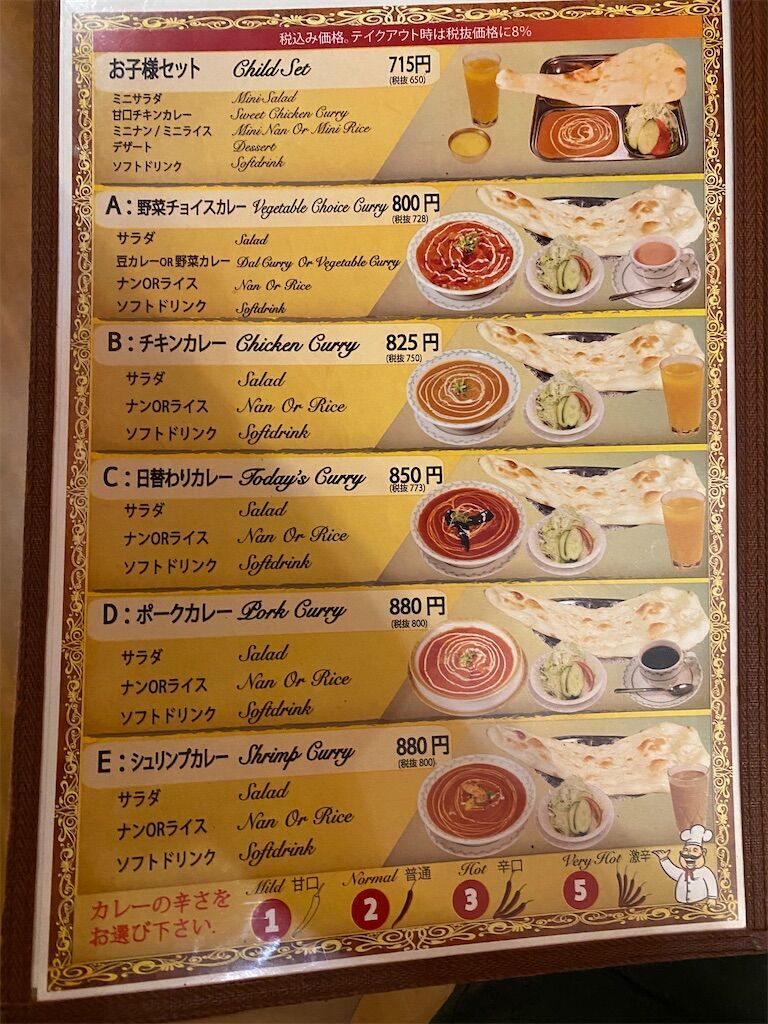 税込み価格。テイクアウト時は税抜価格に8%
お子様セット Child Set 715円
(税抜 650)
ミニサラダ Mini Salad
甘口チキンカレー Sweet Chicken Curry
ミニナン / ミニライス Mini Nan Or Mini Rice
デザート Dessert
ソフトドリンク Softdrink
A : 野菜チョイスカレー Vegetable Choice Curry 800 円
(税抜 728)
サラダ Salad
豆カレーOR 野菜カレー Dal Curry Or Vegetable Curry
ナンORライス Nan Or Rice
ソフトドリンク Softdrink
B : チキンカレー Chicken Curry 825 円
(税抜 750)
サラダ Salad
ナンORライス Nan Or Rice
ソフトドリンク Softdrink
C : 日替わりカレー Today's Curry 850 円
(税抜 773)
サラダ Salad
ナンORライス Nan Or Rice
ソフトドリンク Softdrink
D : ポークカレー Pork Curry 880 円
(税抜 800)
サラダ Salad
ナンORライス Nan Or Rice
ソフトドリンク Softdrink
E : シュリンプカレー Shrimp Curry 880 円
(税抜 800)
サラダ Salad
ナンORライス Nan Or Rice
ソフトドリンク Softdrink
カレーの辛さを
お選び下さい.
Mild 甘口
1
Normal 普通
2
Hot 辛口
3
Very Hot 激辛
5